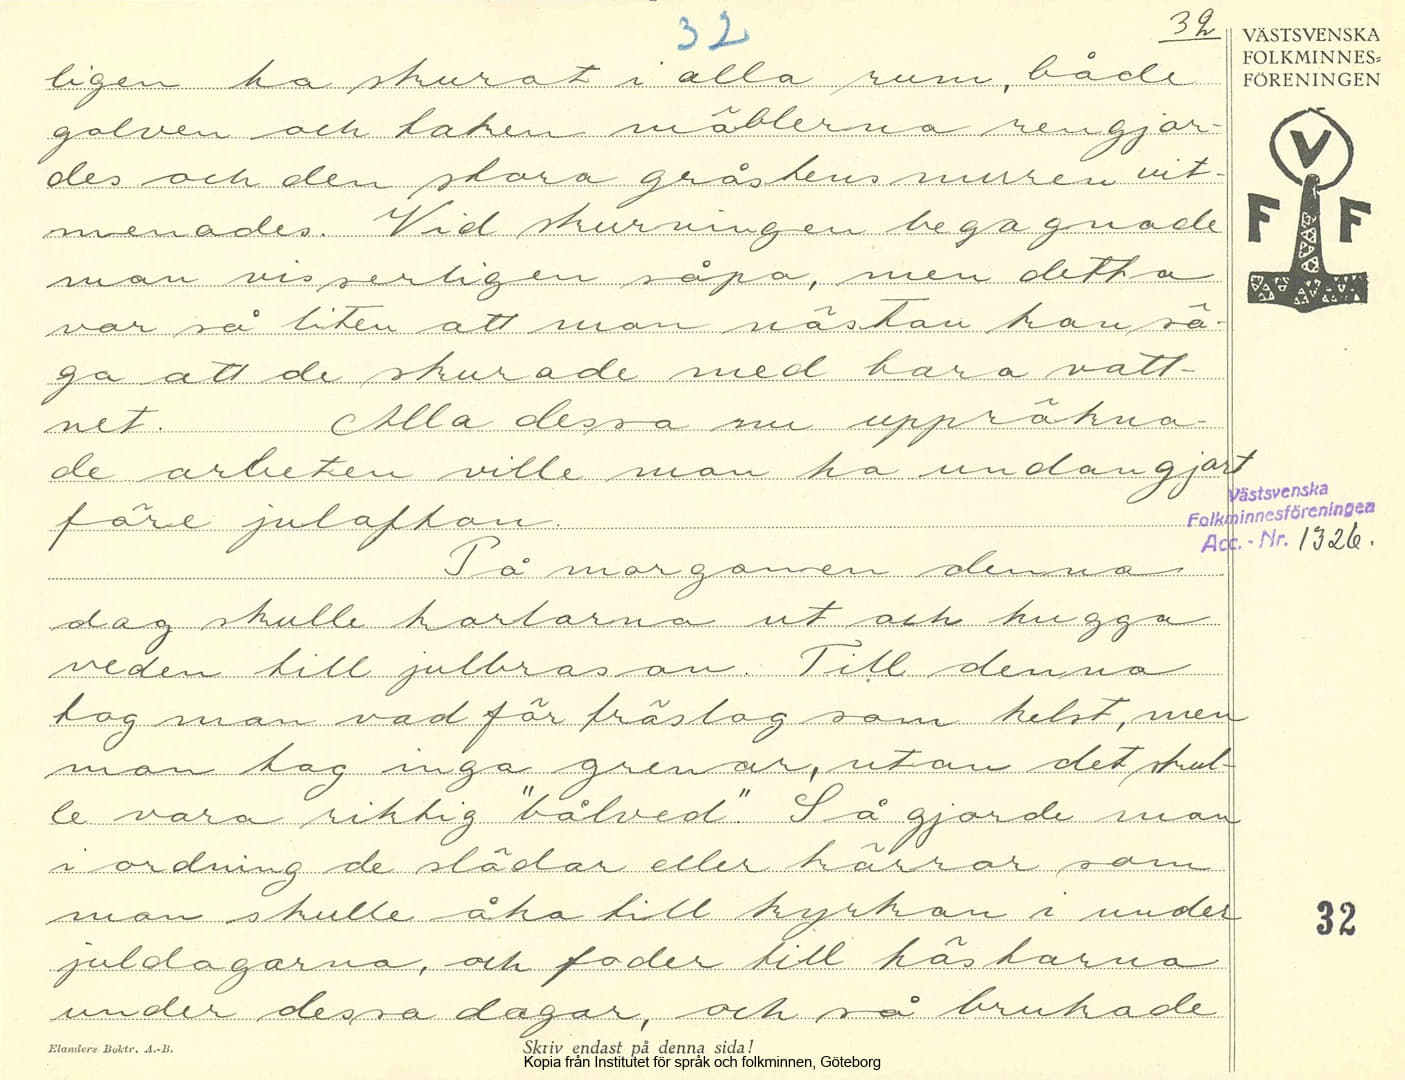 32
32
VÄSTSVENSKA
FOLKMINNES=
FÖRENINGEN
V
F F
ligen ha skurat i alla rum, både
golven och taken möblerna rengjor-
des och den stora gråstensmuren vit-
menades. Vid skurningen begagnade
man visserligen såpa, men detta
var så liten att man nästan kan sä-
ga att de skurade med bara vatt-
net. Alla dessa nu uppräkna-
de arbeten ville man ha undangjort
före julafton.
På morgonen denna
dag skulle karlarna ut och hugga
veden till julbrasan. Till denna
tog man vad för träslag som helst, men
man tog inga grenar, utan det skul-
le vara riktig "bålved". Så gjorde man
i ordning de slädar eller kärror som
man skulle åka till kyrkan i under
juldagarna, och foder till hästarna
under dessa dagar, och så brukade
Västsvenska
Folkminnesföreningen
Acc. - Nr. 1326.
32
Elanders Boktr. A.-B.
Skriv endast på denna sida!
Kopia från Institutet för språk och folkminnen, Göteborg